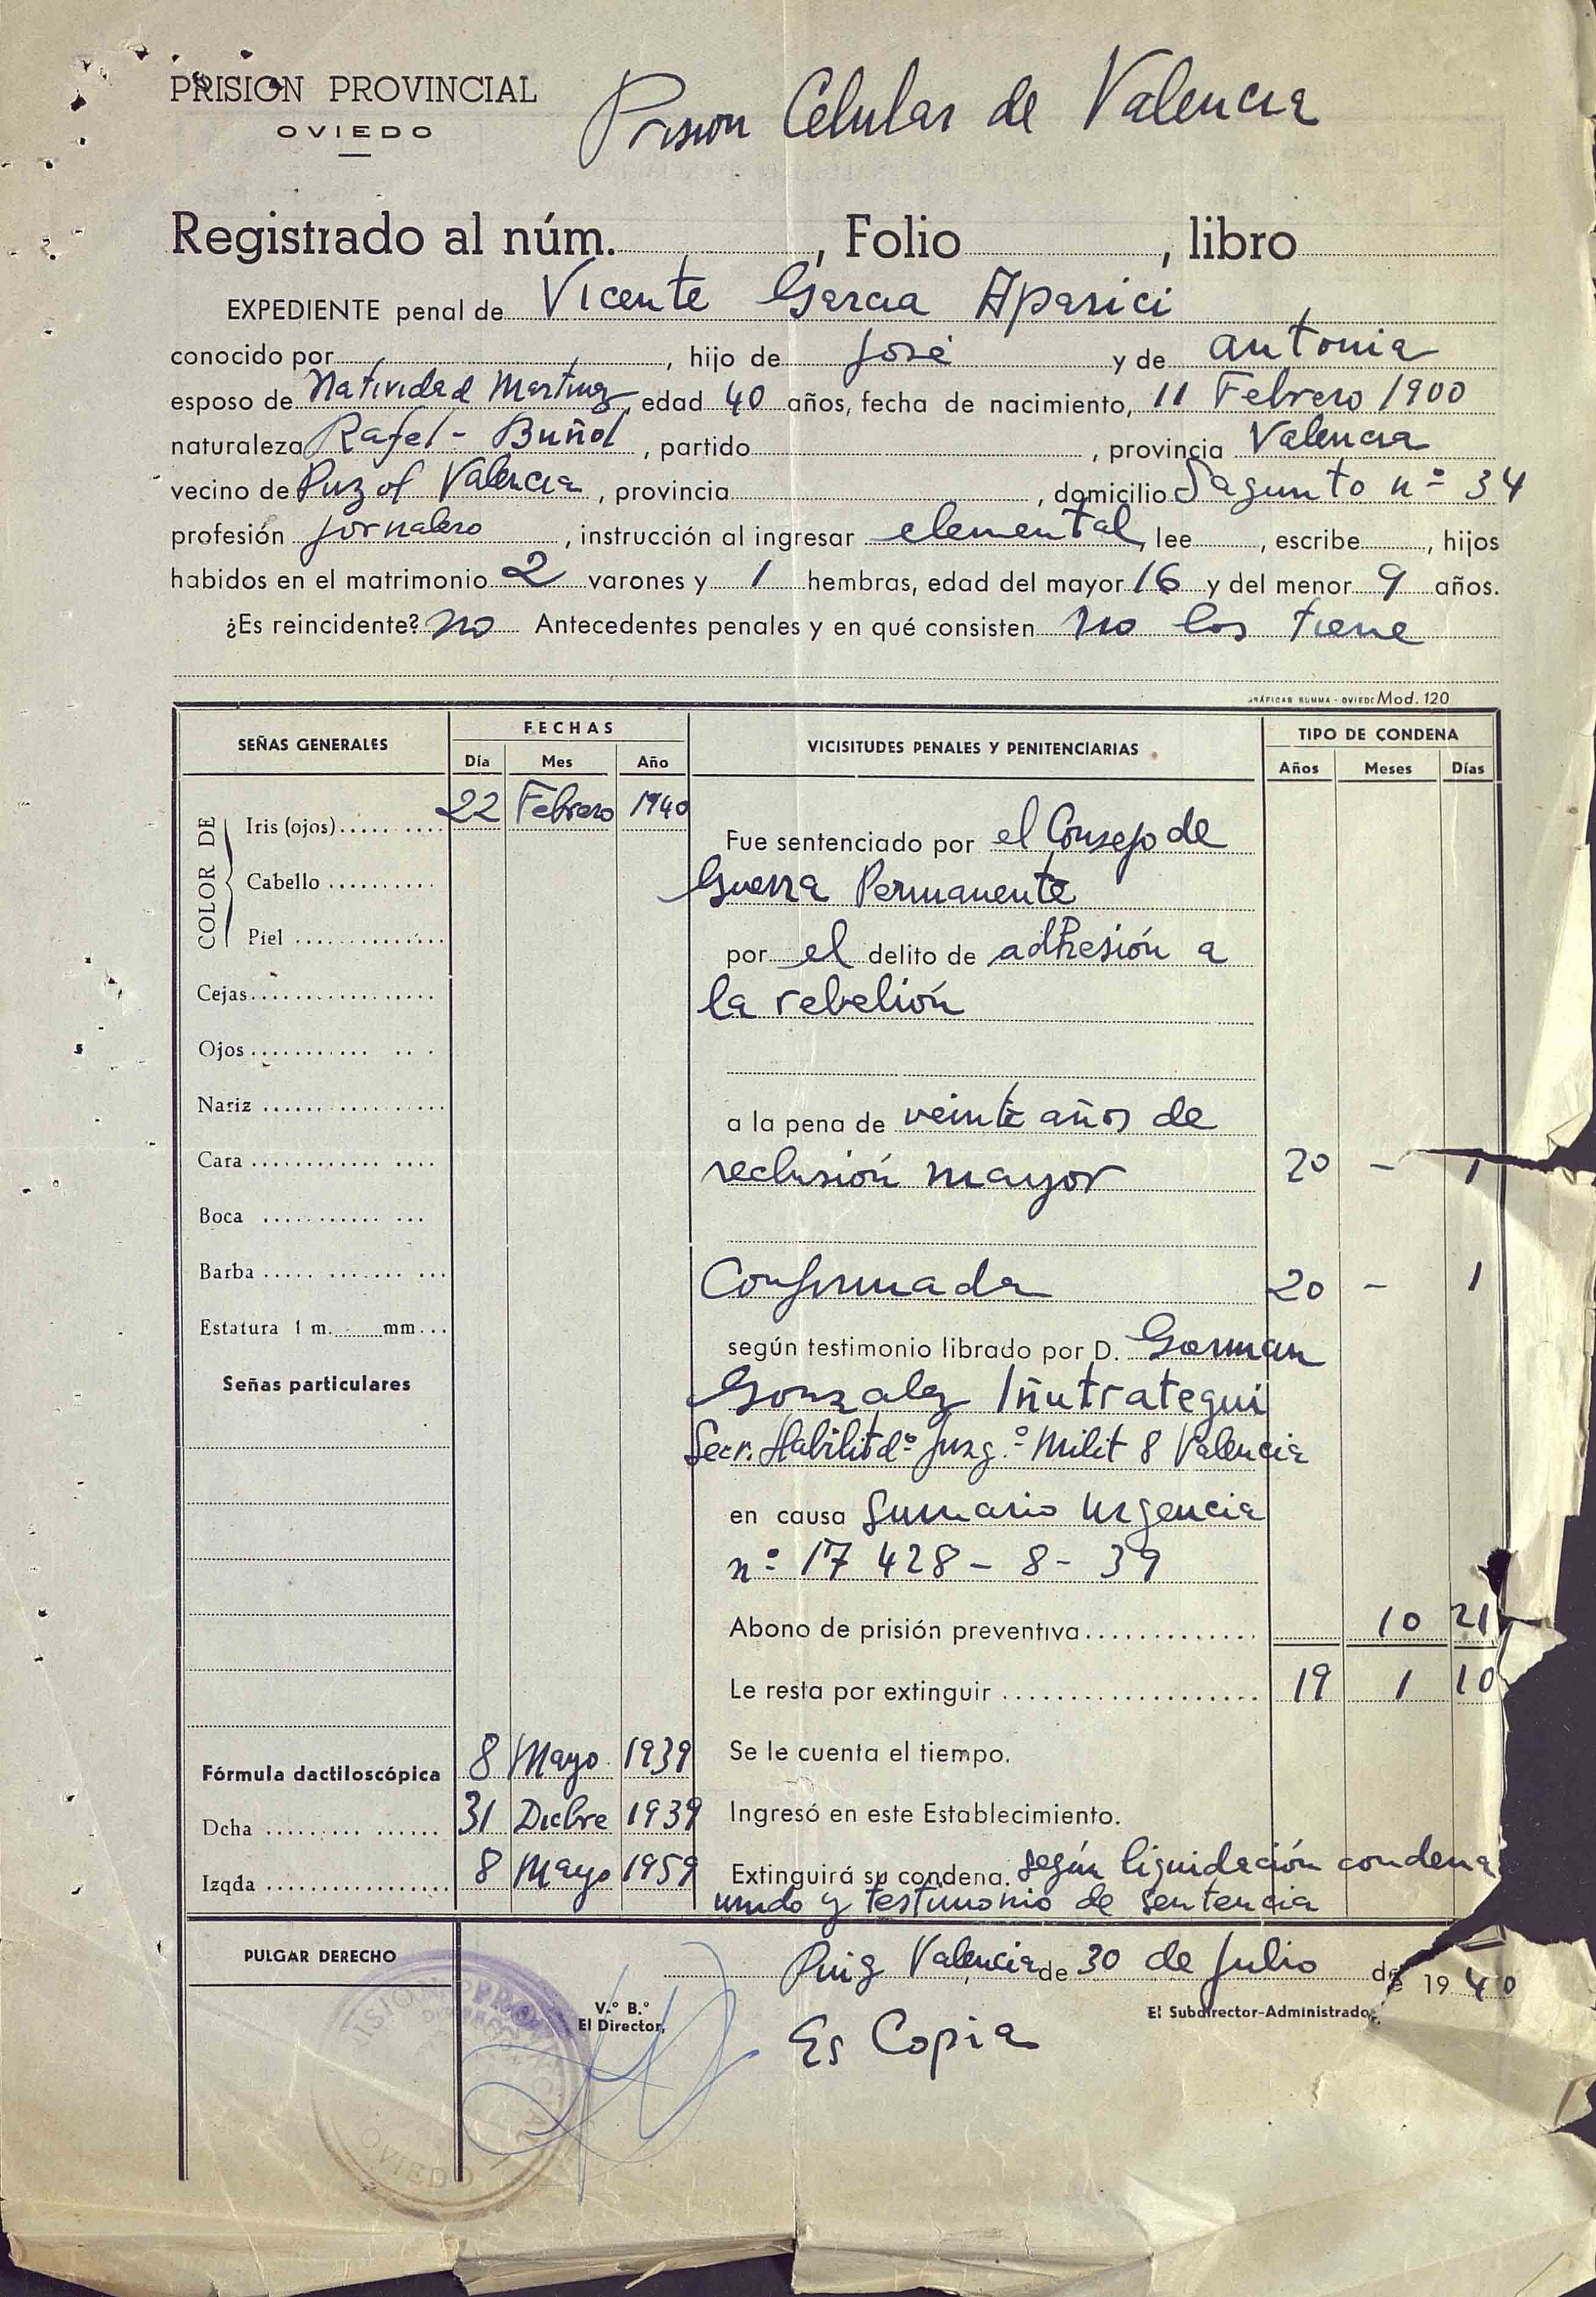 PRISION PROVINCIAL
OVIEDO
Prision Celular de Valencia
Registrado al núm. , Folio , libro
EXPEDIENTE penal de Vicente Garcia Aparici
conocido por , hijo de José y de antonia
esposo de Natividad Martinez, edad 40 años, fecha de nacimiento, 11 Febrero 1900
naturaleza Rafel-Buñol, partido , provincia Valencia
vecino de Puzol Valencia, provincia , domicilio Sagunto nº 34
profesión jornalero, instrucción al ingresar elemental, lee , escribe , hijos
habidos en el matrimonio 2 varones y 1 hembras, edad del mayor 16 y del menor 9 años.
¿Es reincidente? no Antecedentes penales y en qué consisten no los tiene
GRÁFICAS SUMMA - OVIEDO Mod. 120
SEÑAS GENERALES FECHAS VICISITUDES PENALES Y PENITENCIARIAS TIPO DE CONDENA
Día Mes Año Años Meses Días
22 Febrero 1940
COLOR DE
Iris (ojos)
Fue sentenciado por el Consejo de
Cabello
Guerra Permanente
Piel
por el delito de adhesión a
Cejas
la rebelión
Ojos
Nariz
a la pena de veinte años de
Cara
reclusión mayor 20 - 1
Boca
Barba
Confirmada 20 - 1
Estatura 1 m. mm.
según testimonio librado por D. German
Señas particulares
Gonzalez Iñutrategui
Secr. Habilitdº Juzg.º Milit 8 Valencia
en causa Sumario Urgencia
nº 17 428 - 8 - 39
Abono de prisión preventiva 10 21
Le resta por extinguir 19 1 10
Fórmula dactiloscópica 8 Mayo 1939 Se le cuenta el tiempo.
Dcha 31 Dicbre 1939 Ingresó en este Establecimiento.
Izqda 8 Mayo 1959 Extinguirá su condena. según liquidación condena
unido y testimonio de sentencia
PULGAR DERECHO
Puig Valencia de 30 de Julio de 1940
V.º B.º
El Director,
El Subdirector-Administrador,
Es Copia
PRISION PROVINCIAL
OVIEDO